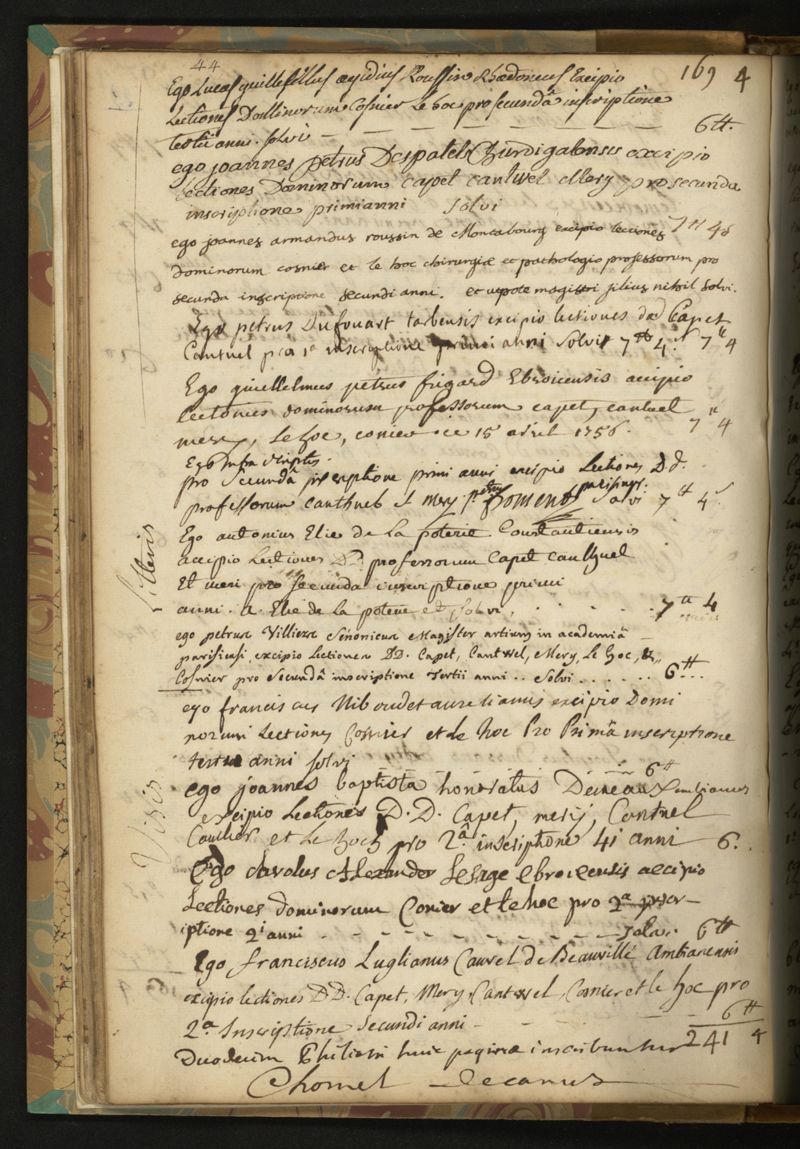 44
169 4
Ego Lucas guillellus aegidius Roussin Rhaedoneus Excipio
Lectiones Dominorum Cosnier Le hoc pro secundâ inscriptione
tertii anni. solvi 6 tt.
ego joannes petrus Despatels Burdigalensis excipio
lectiones Dominorum capet cantwel Mery pro secunda
inscriptione primi anni solvi
7 tt 4 s
ego joannes armandus roussin de Montabourg excipio lectiones
dominorum cosnier et le hoc chirurgiae et pathologiae professorum pro
secunda inscriptione secundi anni. et utpote magistri filius nihil solvi.
Ego petrus Dufouart tarbensis excipio lectiones dd Capet
Cantuel pro 1a inscriptione primi anni Solvi 7 tt 4 s 7 tt 4
Ego guillelmus petrus frigard Ebroicensis accipio
lectiones dominorum professorum capet, cantuel
mery, Le hoc, conier ce 15 avril 1756. 7 tt 4
Ego infra scriptus
pro Secundâ inscriptione primi anni excipio Lectiones D d.
professorum canthuel et mery petrus homent parisinus. Solvi 7 tt 4 s
Litteris
Ego antonius Elie de La poterie Constantiensis
accipio Lectiones D D professorum Capet canthuel
Et meri pro Secunda inscriptione primi
anni. A. Elie de la poterie et solvi. 7 tt 4
ego petrus Villiers Senonicus Magister artium in academiâ
parisiensi, excipio Lectiones DD. Capet, Cantwel, Mery, Le hoc, &,
Cosnier pro Secundâ inscriptione Tertii anni .. Solvi ...... 6 tt...
ego franciscus Niboudet aurelianus excipio Domi
norum Lectiones Cosnier et Le hoc Pro Primâ inscriptione
tertii anni solvi
6 tt
Visis
ego joannes baptista honoratus Dei
excipio Lectiones D. D. Capet, merij, Contuel
et Le hoc pro 2â inscriptione 4i anni 6.
Ego Carolus Alexander Lesage Ebroicensis accipio
Lectiones dominorum Conier et le hoc pro 2a inscr-
iptione 2i anni - - - - - Solvi. 6 tt
Ego franciscus Luglianus Cauvel de Beauvillé Ambianensis
excipio lectiones DD. Capet, Mery, Cantwel, Cosnier et le hoc pro
2a Inscriptione Secundi anni - - - 6 tt
241 4
Duodecim Philiatri huic paginae inscribuntur
Chomel Decanus